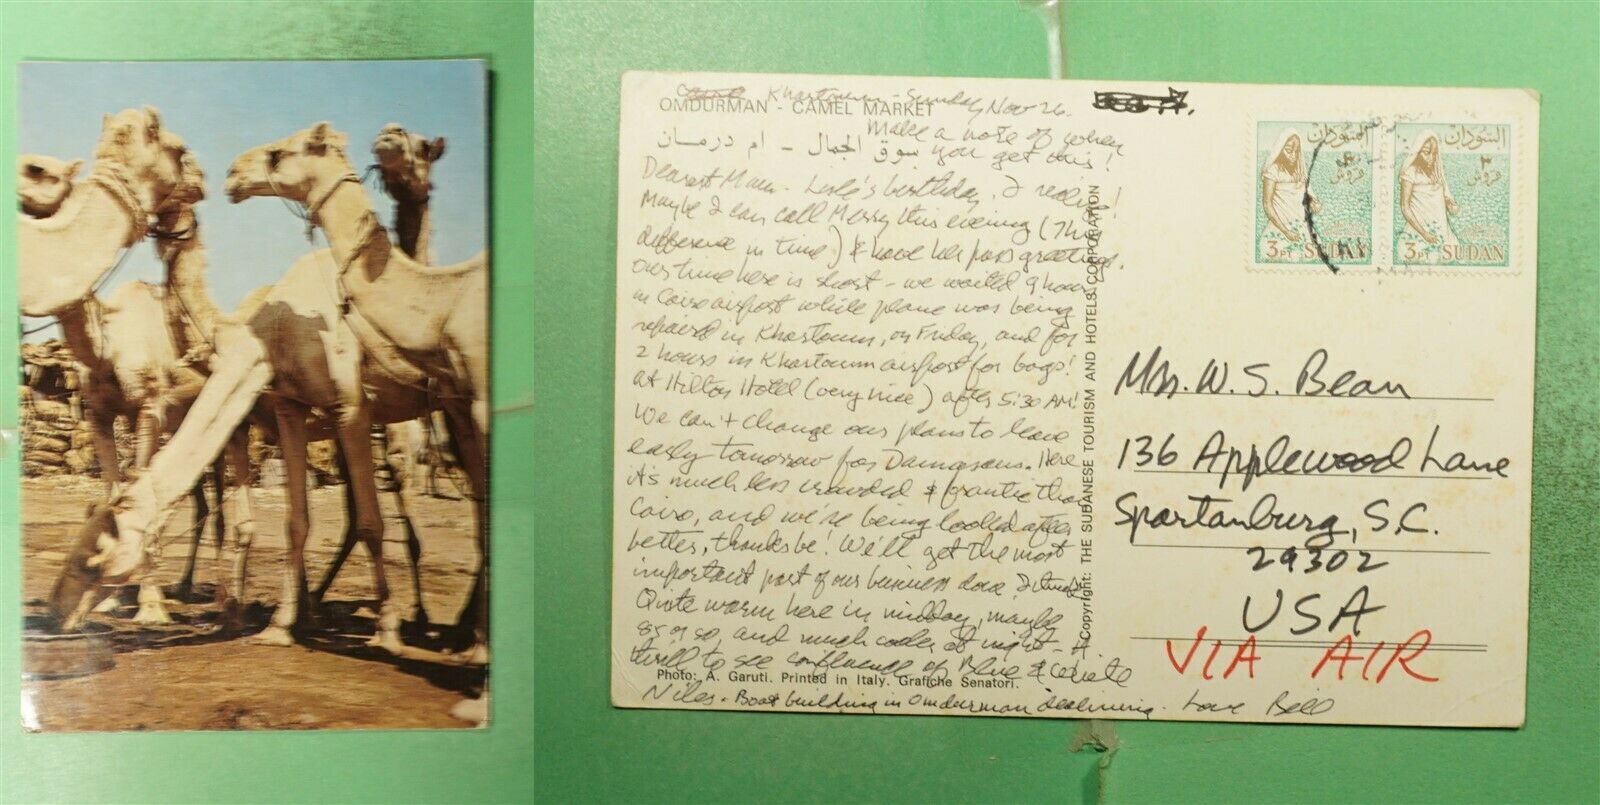 Khartoum - Sunday Nov 26.
OMDURMAN - CAMEL MARKET
سوق الجمال - ام درمـــان
Make a note of when
you get this!
Dearest Mam - Lisle's birthday, I realize!
Maybe I can call Merry this evening (7 hrs
difference in time) & have her pass greetings.
Our time here is short - we waited 9 hours
in Cairo airport while plane was being
repaired in Khartoum, on Friday, and for
2 hours in Khartoum airport for bags!
At Hilton Hotel (very nice) after 5:30 AM!
We can't change our plans to leave
early tomorrow for Damascus. Here
it's much less crowded & frantic than
Cairo, and we're being looked after
better, thanks be! We'll get the most
important part of our business done I think
Quite warm here in midday, maybe
85 or so, and much cooler at night - A
thrill to see confluence of Blue & White
Niles - Boat building in Omdurman declining. Love Bill
Photo: A. Garuti. Printed in Italy. Grafiche Senatori.
Copyright: THE SUDANESE TOURISM AND HOTELS CORPORATION
السودان
٣
قروش
3 PT SUDAN
السودان
٣
قروش
3 PT SUDAN
Mrs. W. S. Bean
136 Applewood Lane
Spartanburg, S.C.
29302
USA
VIA AIR